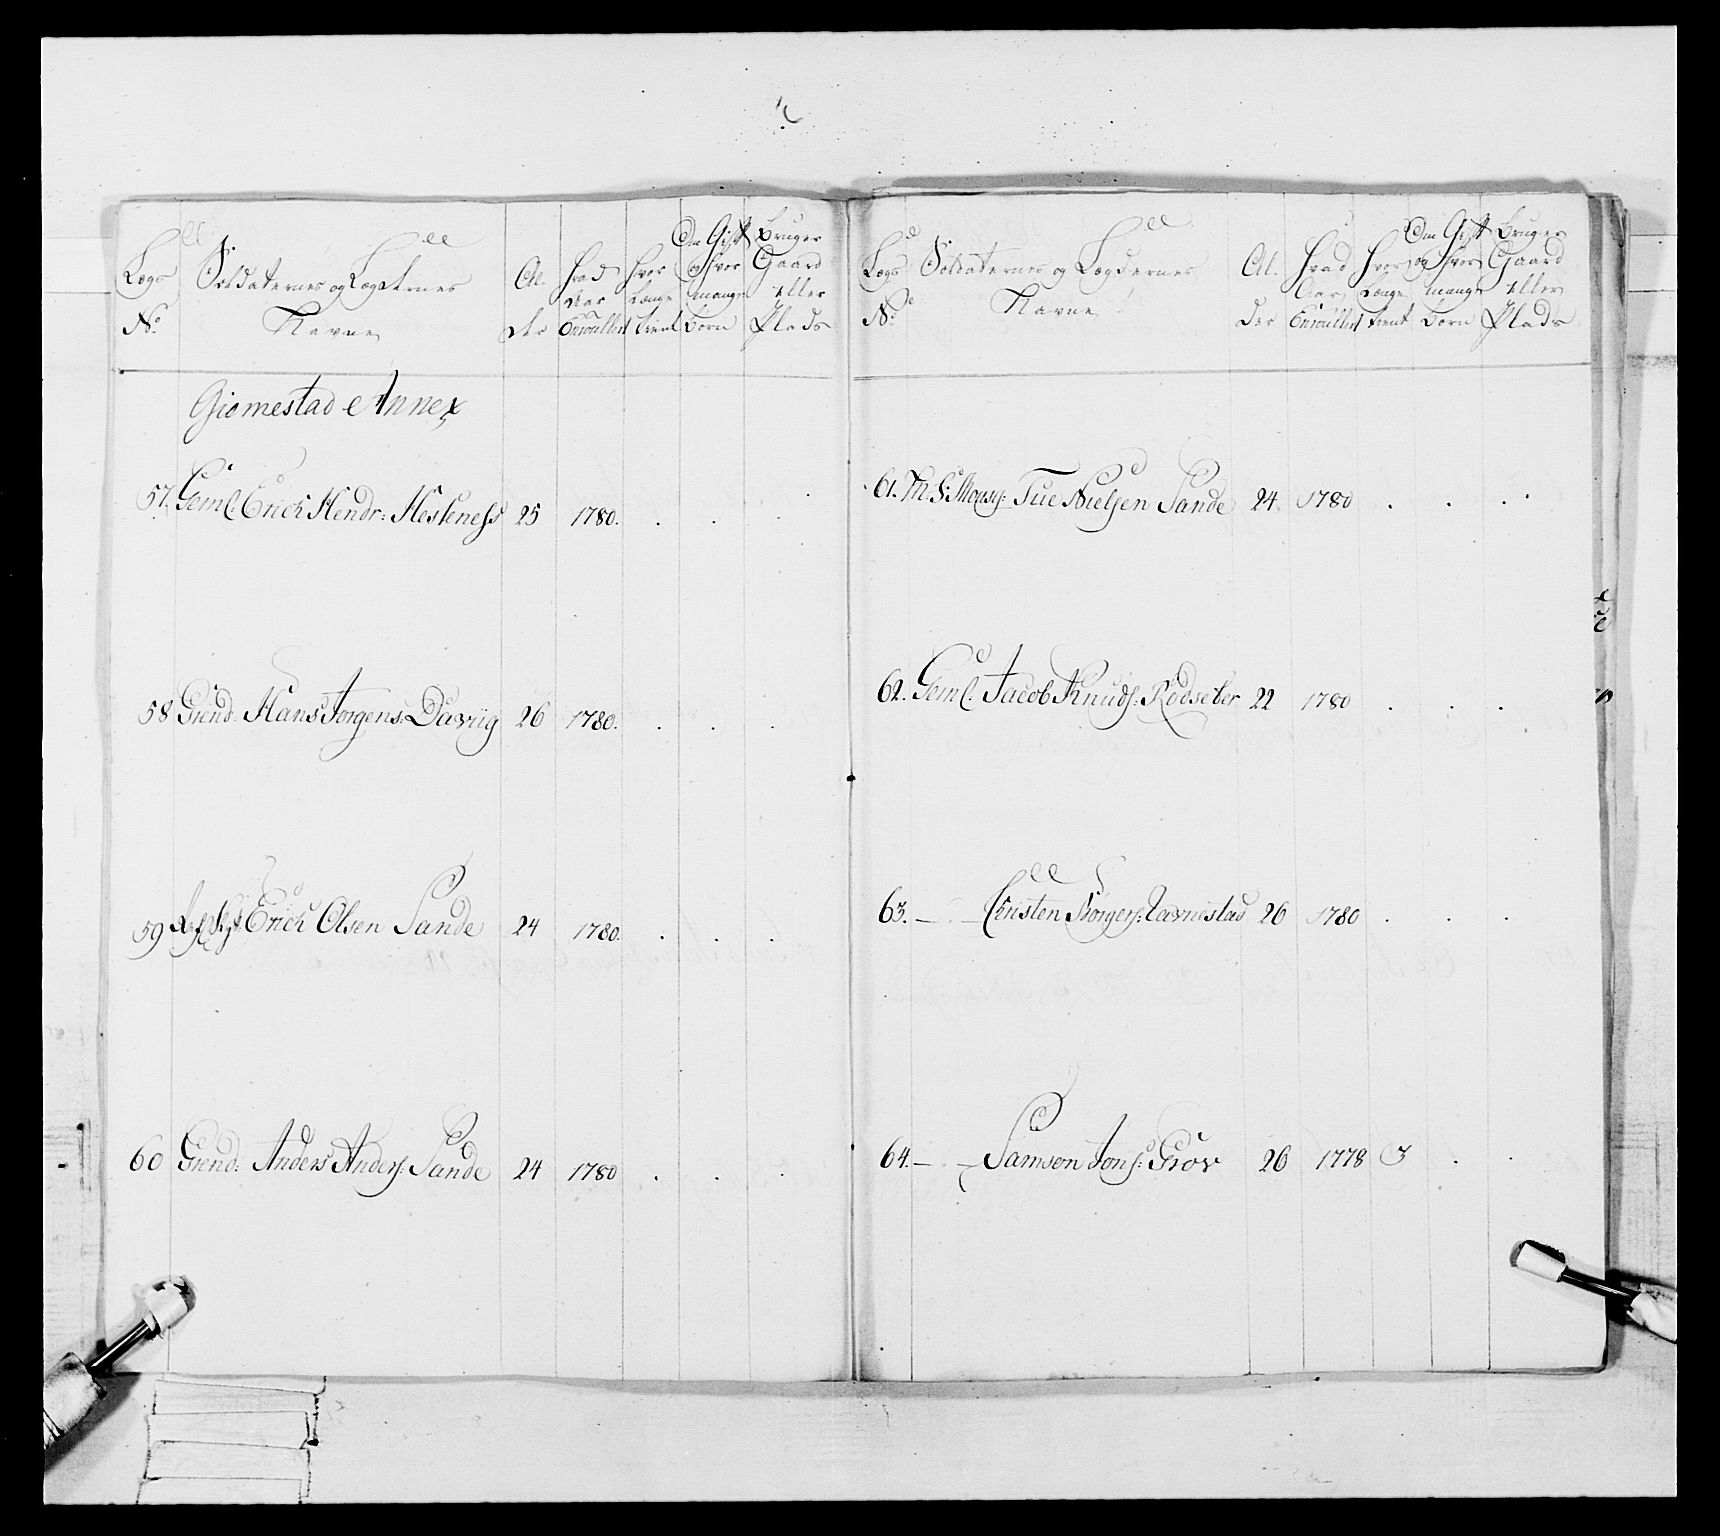 Lægs Soldaternes og Lægdernes Al. Hvad Hvor Om Gift Bruger
Aar Længe og Hvor Gaard
mange eller
No Navne der Enroullert tient Børn Plads
Giemestad Annex
57. Geml. Erich Hendr: Hesteness 25 1780. . . .
58 Grend: Hans Jorgens: Daviig 26 1780. . . .
59 Erich Olsen Sande 24 1780. . . .
60 Grend: Anders Anders: Sande 24 1780 . . .
Lægs Soldaternes og Lægdernes Al. Hvad Hvor Om Gift Bruger
Aar Længe og Hvor Gaard
mange eller
No Navne der Enroullert tient Børn Plads
61. Tue Nielsen Sande 24. 1780 . . .
62. Geml. Jacob Knuds: Rödseter 22 1780 . . .
63. — . — Christen Börgers: Tavnestad 26 1780 . . .
64. — . — Samson Jons: Grov 26 1778 3 . .